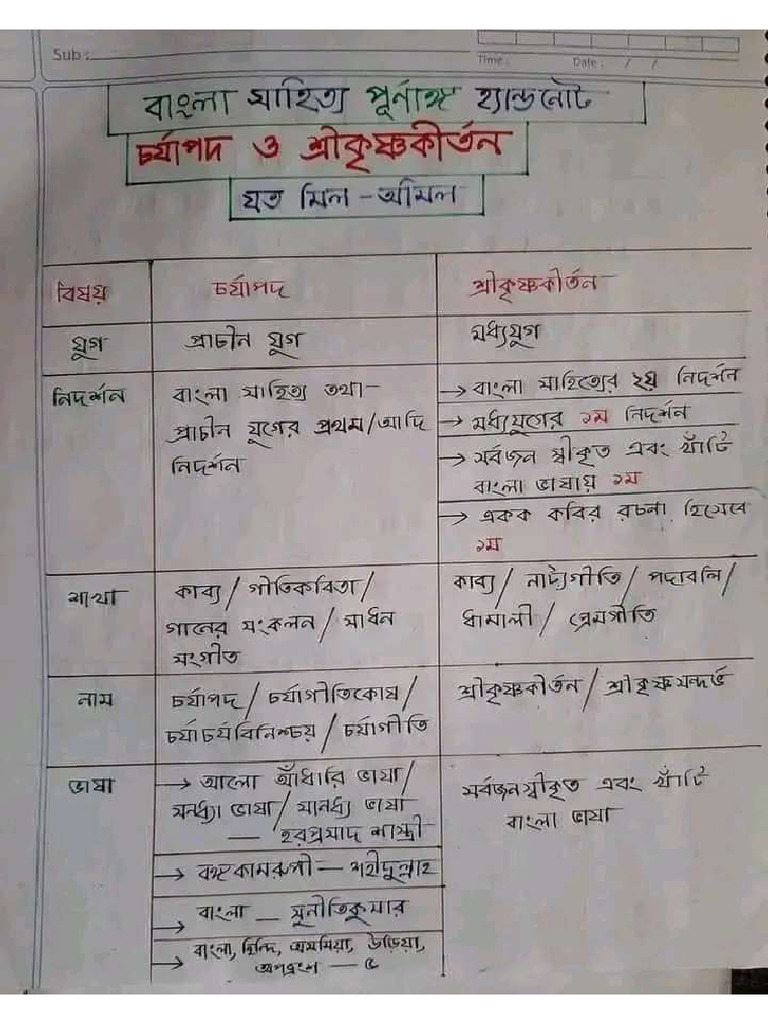 Sub:
Time:
Date: / /
বাংলা সাহিত্য পূর্নাঙ্গ হ্যান্ডনোট
চর্যাপদ ও শ্রীকৃষ্ণকীর্তন
যত মিল - অমিল
বিষয়
চর্যাপদ
শ্রীকৃষ্ণকীর্তন
যুগ
প্রাচীন যুগ
মধ্যযুগ
নিদর্শন
বাংলা সাহিত্য তথা-
প্রাচীন যুগের প্রথম/আদি
নিদর্শন
→ বাংলা সাহিত্যের ২য় নিদর্শন
→ মধ্যযুগের ১ম নিদর্শন
→ সর্বজন স্বীকৃত এবং খাঁটি
বাংলা ভাষায় ১ম
→ একক কবির রচনা হিসেবে
১ম
শাখা
কাব্য / গীতিকবিতা /
গানের সংকলন / সাধন
সংগীত
কাব্য / নাট্যগীতি / পদাবলি /
ধামালী / প্রেমগীতি
নাম
চর্যাপদ / চর্যাগীতিকোষ /
চর্যাচর্যবিনিশ্চয় / চর্যাগীতি
শ্রীকৃষ্ণকীর্তন / শ্রীকৃষ্ণসন্দর্ভ
ভাষা
→ আলো আঁধারি ভাষা/
সন্ধ্যা ভাষা/ সান্ধ্য ভাষা
— হরপ্রসাদ শাস্ত্রী
→ বঙ্গকামরুপী — শহীদুল্লাহ
→ বাংলা — সুনীতিকুমার
→ বাংলা, হিন্দি, অসমিয়া, উড়িয়া,
অপভ্রংশ — ৫
সর্বজনস্বীকৃত এবং খাঁটি
বাংলা ভাষা